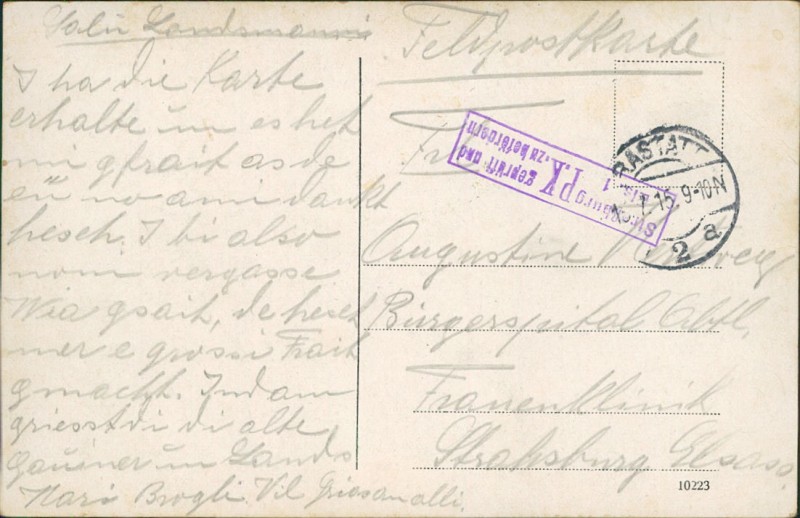 Salü Landsmann
I ha die Karte
erhalte un es het
mi gfrait as de
eü no ami dankt
hesch. I bi also
nonit vergasse
Wia gsait, de hesch
mer e grossi Frait
gmacht. Indam
griesst di di alte
Gauner un Lands
Mari Brogli. Vil Griosanalli.
Feldpostkarte
Augustine
Bürgerspital Abtl.
Frauenklinik
Straßburg Elsass.
Straßburg P.K.
geprüft und
zu befördern
RASTATT
15 9-10N
2 a
10223